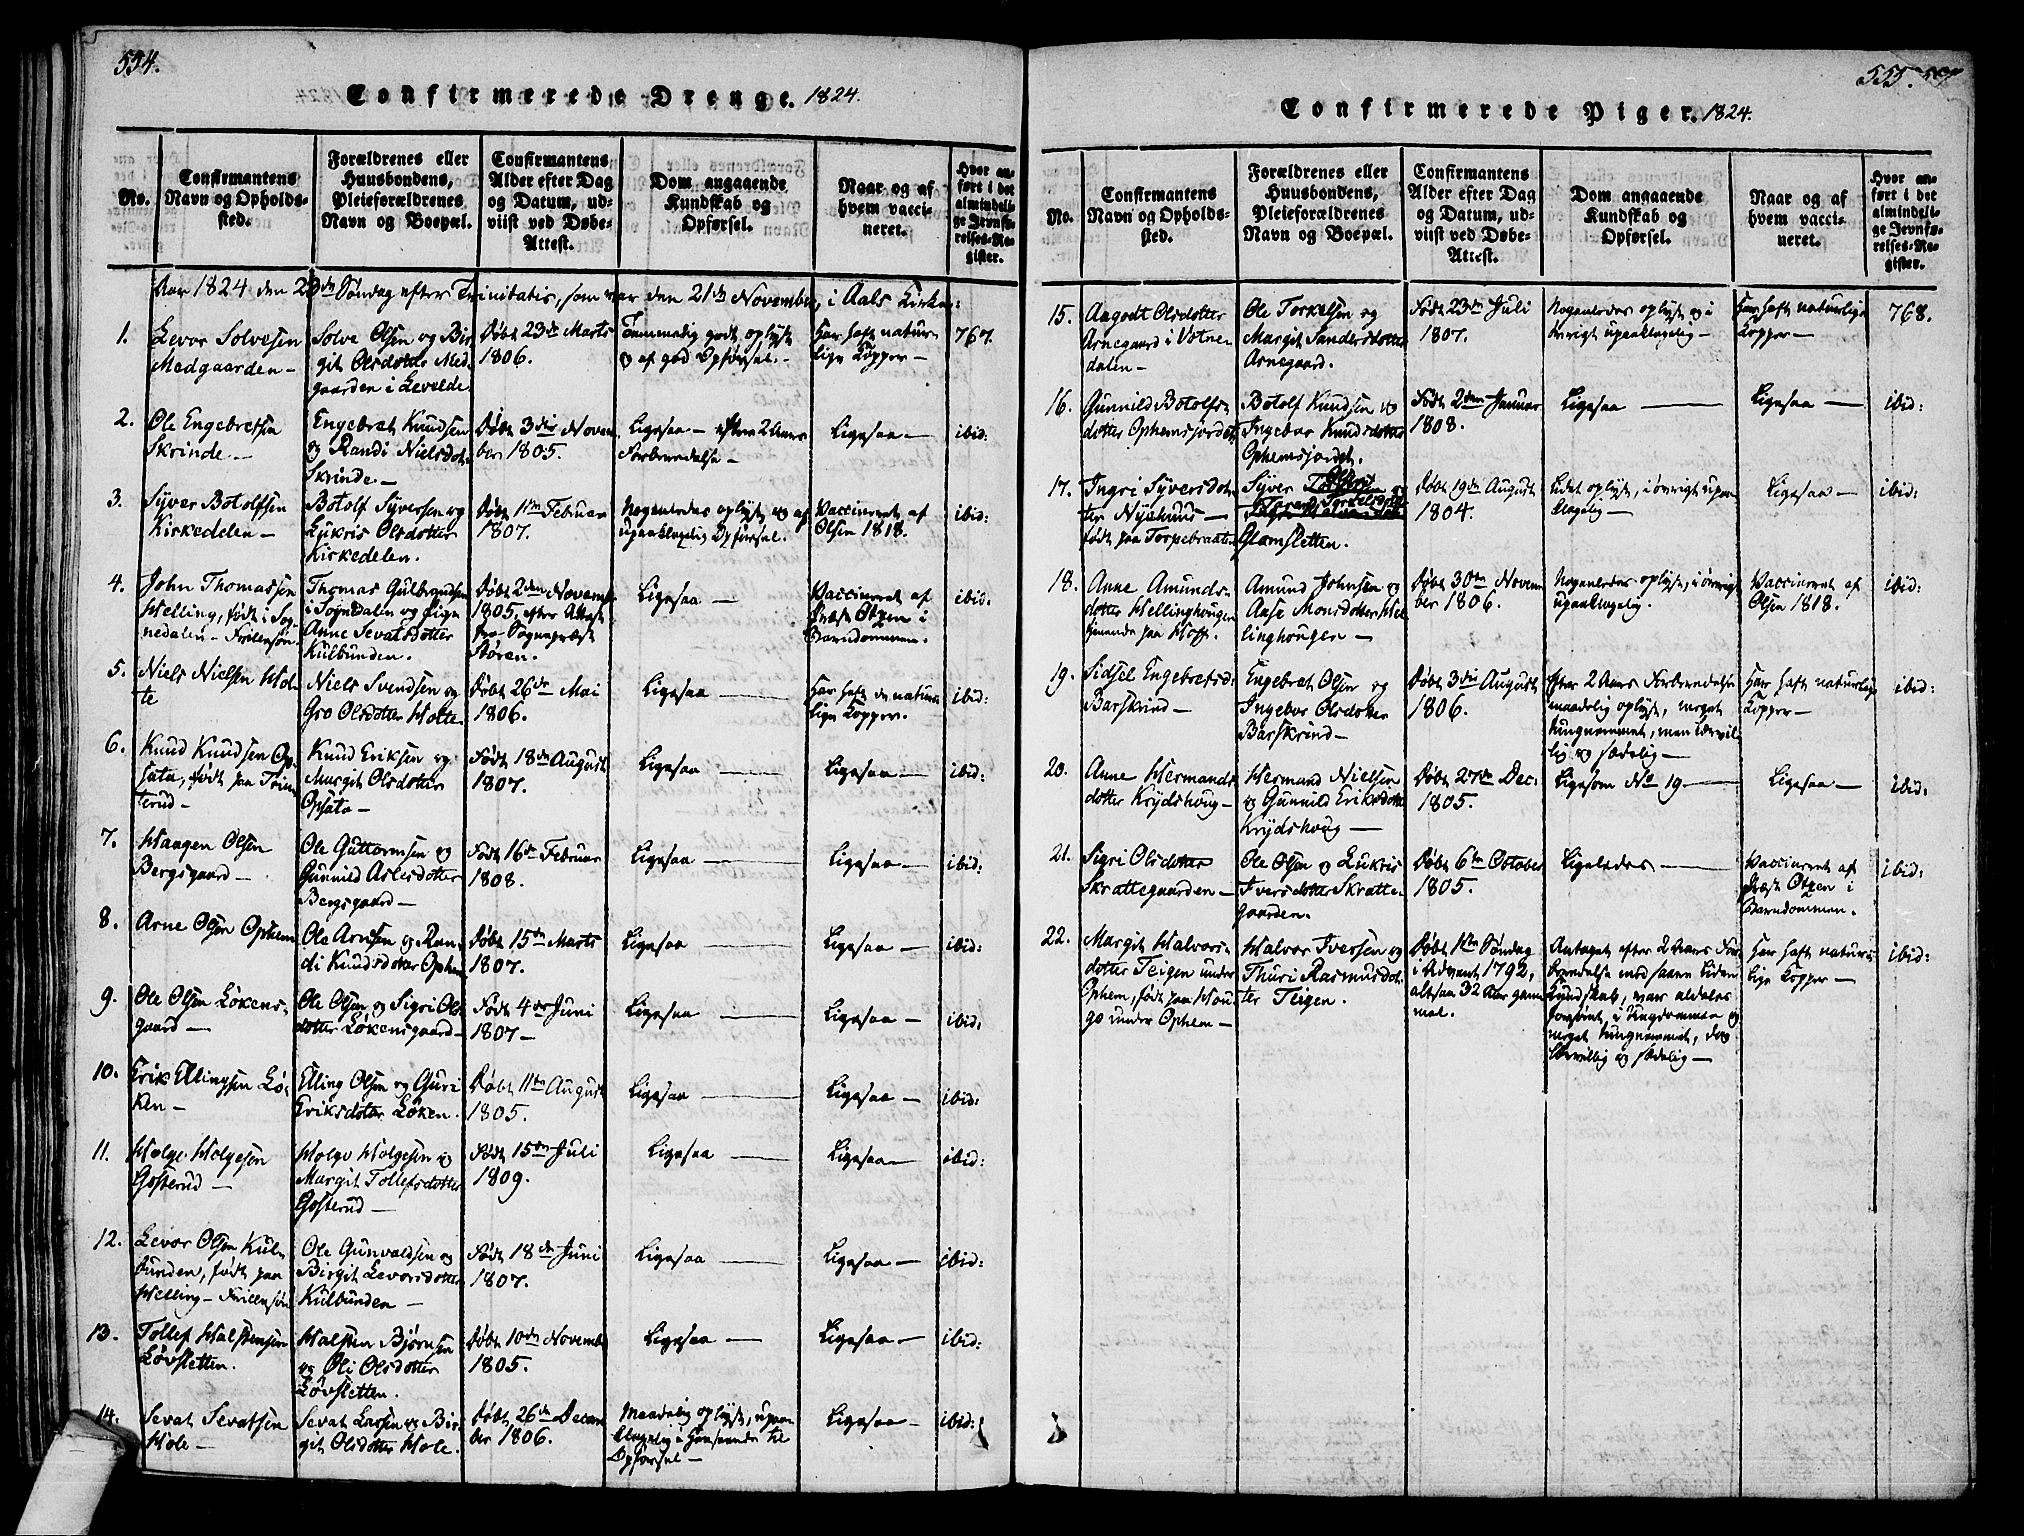 554.
Confirmerede Drenge. 1824.
No.
Confirmantens
Navn og Opholds-
sted.
Forældrenes eller
Huusbondens,
Pleieforældrenes
Navn og Boepæl.
Confirmantens
Alder efter Dag
og Datum, ud-
viist ved Døbe-
Attest.
Dom angaaende
Kundskab og
Opførsel.
Naar og af
hvem vacci-
neret.
Hvor an-
ført i det
almindeli-
ge Jevnfø-
relses-Re-
gister.
Aar 1824 den 23de Søndag efter Trinitatis, som var den 21de November, i Aals Kirke:
1.
Levor Solvesen
Medgaarden –
Solve Olsen og Bir-
git Olsdotter Med-
gaarden i Levelde.
Døbt 23de Marts
1806.
Temmelig godt oplyst
og af god Opførsel. –
Har haft natur-
lige Kopper –
767.
2.
Ole Engebretsen
Skrinde –
Engebret Knudsen
og Randi Nielsdot.
Skrinde. –
Døbt 3die Novem-
ber 1805.
Ligesaa – efter 2 Aars
Forberedelse –
Ligesaa –
ibid:
3.
Syver Botolfsen
Kirkedelen –
Botolf Syversen og
Lukris Olsdotter
Kirkedelen.
Døbt 11te Februar
1807.
Nogenledes oplyst, og af
upaaklagelig Opførsel. –
Vaccineret af
Olsen 1818.
ibid:
4.
John Thomassen
Helling, født i Sog-
nedalen – Frillesøn
Thomas Gulbrandsen
i Sogndalen og Pigen
Anne Sevatsdotter
Kulbunden.
Døbt 2den Novemb.
1805, efter Attest
fra Sognepræst
Støren.
Ligesaa –
Vaccineret af
Præst Otzen i
Barndommen.
ibid.
5.
Niels Nielsen Hol-
te
Niels Svendsen og
Gro Olsdotter Holte.
Døbt 26de Mai
1806.
Ligesaa –
Har haft de natur-
lige Kopper.
ibid:
6.
Knud Knudsen Op-
sata, født paa
terud –
Knud Eriksen og
Margit Olsdotter
Opsata –
Født 18de August
1807.
Ligesaa –
Ligesaa –
ibid:
7.
Haagen Olsen
Bergsgaard –
Ole Guttormsen og
Gunnild Aslesdotter
Bergsgaard –
Født 16de Februar
1808.
Ligesaa –
Ligesaa –
ibid:
8.
Arne Olsen Ophem
Ole Arnsen og Ran-
di Knudsdotter Ophem
Døbt 15de Marts
1807.
Ligesaa –
Ligesaa –
ibid:
9.
Ole Olsen Lökens-
gaard –
Ole Olsen og Sigri Ols-
dotter Lökensgaard –
Født 4de Juni
1807 –
Ligesaa –
Ligesaa –
ibid:
10.
Erik Ellingsen Lö-
ken –
Elling Olsen og Guri
Eriksdotter Löken.
Døbt 11te August
1805.
Ligesaa –
Ligesaa –
ibid:
11.
Holge Holgesen
Gosterud –
Holge Holgesen og
Margit Tollefsdotter
Gosterud –
Født 15de Juli
1809.
Ligesaa –
Ligesaa –
ibid:
12.
Levor Olsen Kul-
bunden, født paa
Helling – Frillesøn
Ole Gunvaldsen og
Birgit Levorsdotter
Kulbunden –
Født 18de Juni
1807.
Ligesaa –
Ligesaa –
ibid:
13.
Tollef Halstensen
Lövsletten.
Halsten Björnsen
og Oli Olsdotter
Lövsletten.
Døbt 10de Novemb.
1805.
Ligesaa –
Ligesaa –
ibid:
14.
Sevat Sevatsen
Hole –
Sevat Larsen og Bir-
git Olsdotter Hole.
Døbt 26de Decem-
ber 1806.
Maadelig oplyst, upaa-
klagelig i Henseende til
Opførsel –
Ligesaa –
ibid:
555.
Confirmerede Piger. 1824.
No.
Confirmantens
Navn og Opholds-
sted.
Forældrenes eller
Huusbondens,
Pleieforældrenes
Navn og Boepæl.
Confirmantens
Alder efter Dag
og Datum, ud-
viist ved Døbe-
Attest.
Dom angaaende
Kundskab og
Opførsel.
Naar og af
hvem vacci-
neret.
Hvor an-
ført i det
almindeli-
ge Jevnfø-
relses-Re-
gister.
15.
Aagodt Olsdotter
Arnegaard i Votne-
dalen –
Ole Torkelsen og
Margit Sandersdotter
Arnegaard.
Født 23de Juli
1807.
Nogenledes oplyst og i
øvrigt upaaklagelig –
Har haft naturlige
Kopper –
768.
16.
Gunnild Botolfs-
dotter Ophemsjordet
Botolf Knudsen og
Ingebor Knudsdotter
Ophemsjordet.
Født 2den Januar
1808.
Ligesaa –
Ligesaa –
ibid:
17.
Ingri Syversdot-
ter Nyehuus –
født paa Torpebraaten
Syver Olsen og
Torkelsdotter
Glomsletten.
Døbt 19de August
1804.
Lidet oplyst, i øvrigt upaa-
klagelig –
Ligesaa –
ibid:
18.
Anne Amunds-
dotter Hellinghougen
tjenende paa Hoff.
Amund Johnsen og
Aase Monsdotter Hel-
linghougen –
Døbt 30te Novem-
ber 1806.
Nogenledes oplyst, i øvrigt
upaaklagelig.
Vaccineret af
Olsen 1818.
ibid:
19.
Sidsel Engebretsd.
Barskrind –
Engebret Olsen og
Ingebor Olsdotter
Barskrind –
Døbt 3die August
1806.
Efter 2 Aars Forberedelse
maadelig oplyst, meget
tungnemmet, men lærvil-
lig og sædelig –
Har haft naturlige
Kopper –
ibid:
20.
Anne Hermands-
dotter Krydshoug –
Hermand Nielsen
og Gunnild Eriksdotter
Krydshoug –
Døbt 27de Dec.
1805.
Ligesom No 19 –
Ligesaa –
ibid:
21.
Sigri Olsdotter
Skrattegaarden –
Ole Olsen og Lukris
Iversdotter Skratte-
gaarden.
Døbt 6te October
1805.
Ligeledes –
Vaccineret af
Præst Otzen i
Barndommen.
ibid:
22.
Margit Halvors-
dotter Teigen under
Ophem, født paa Hou-
go under Ophem –
Halvor Iversen og
Thuri Rasmusdot-
ter Teigen.
Døbt 1ste Søndag
i Advent 1792,
altsaa 32 Aar gam-
mel.
Antaget efter 2 Aars For-
beredelse med saare liden
Kundskab, var aldeles
forsømt i Ungdommen og
meget tungnemmet, dog
lærvillig og sædelig –
Har haft natur-
lige Kopper –
ibid: